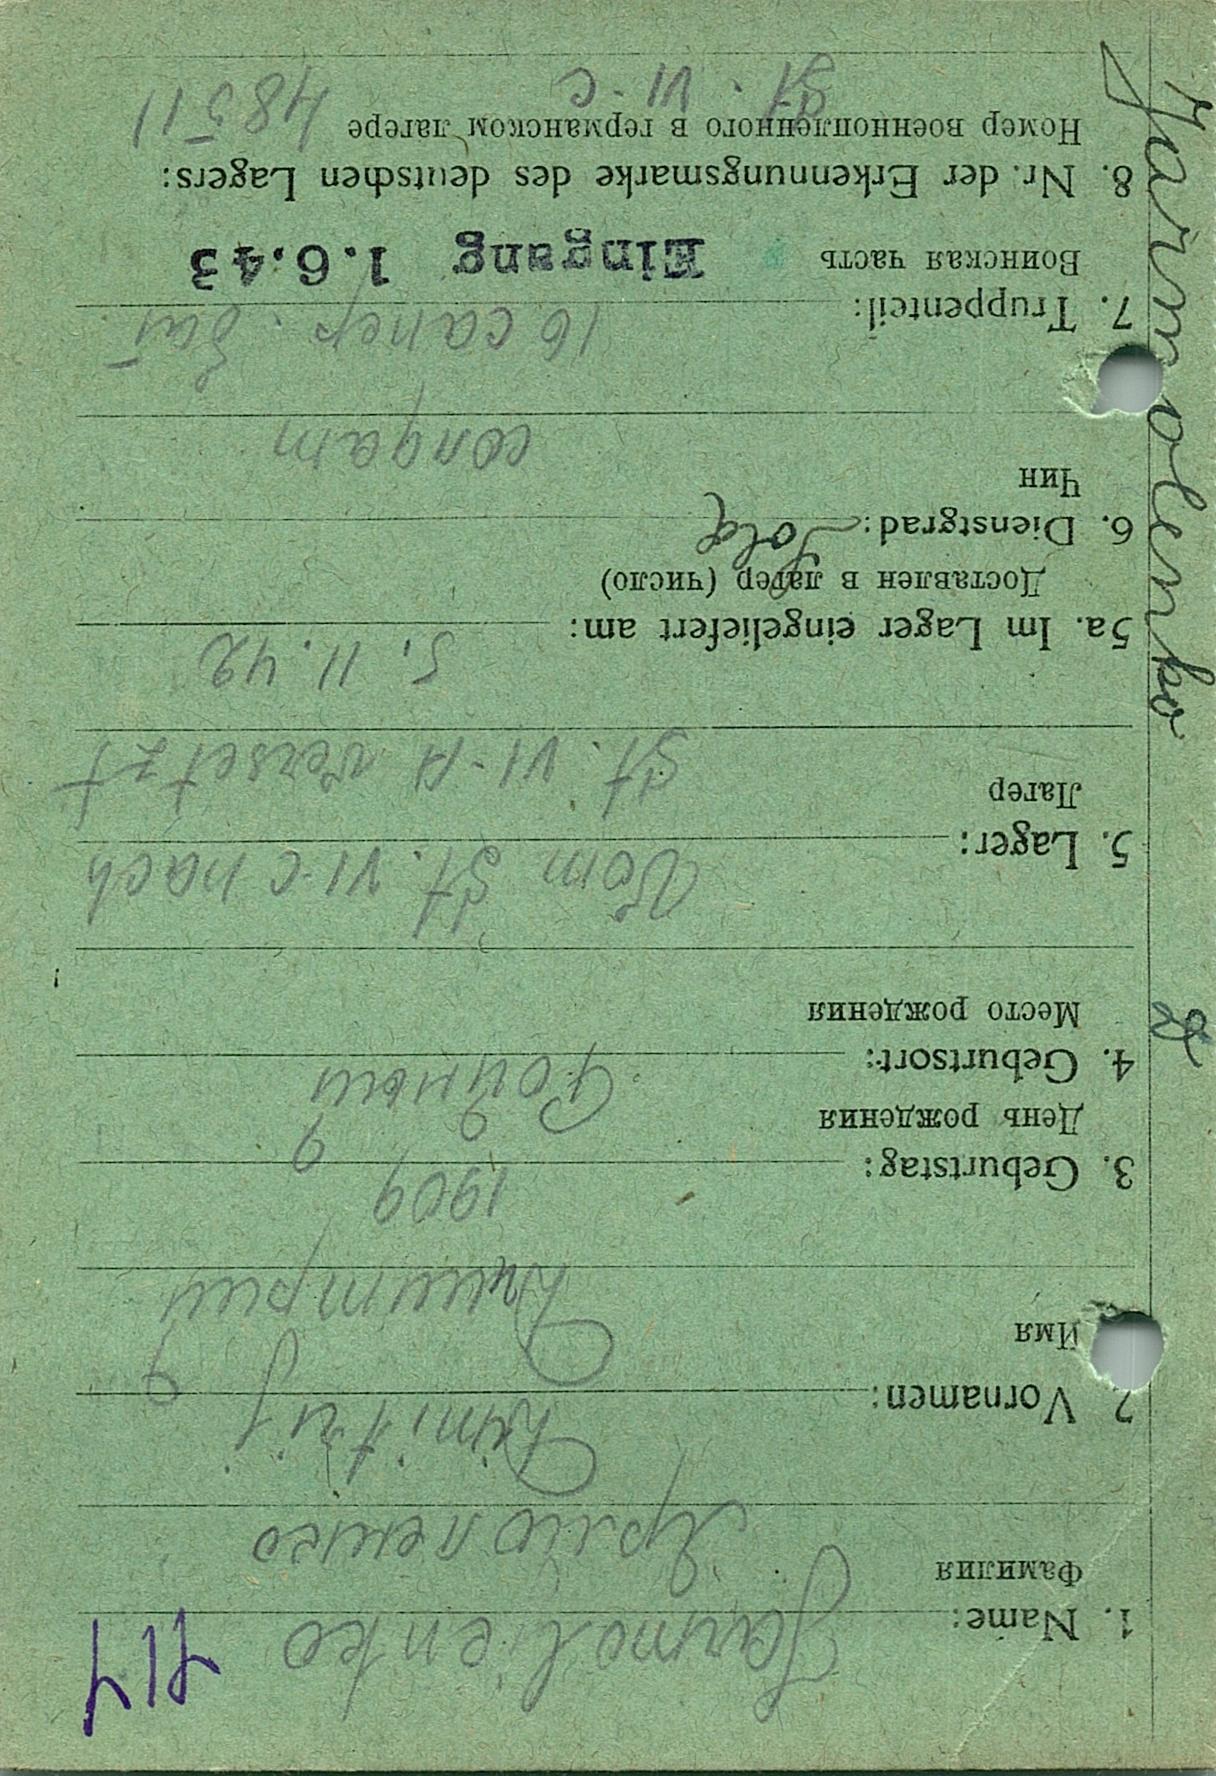 717
1. Name: Jarmolienko
Фамилия Ярмоленко
2 Vornamen: Dimitrij
Имя Дмитрий
3. Geburtstag: 1909
День рождения
4. Geburtsort:
Место рождения
5. Lager: Vom St. VI-C nach
Лагер St. VI-A versetzt
5a. Im Lager eingeliefert am: 5. 11. 42
Доставлен в лагер (число)
6. Dienstgrad: Sold
Чин солдат
7. Truppenteil: 16 сапер. бат
Воинская часть Eingang 1.6.43
8. Nr. der Erkennungsmarke des deutschen Lagers:
Номер военнопленного в германском лагере 48511
St. VI-C
Jarmolenko